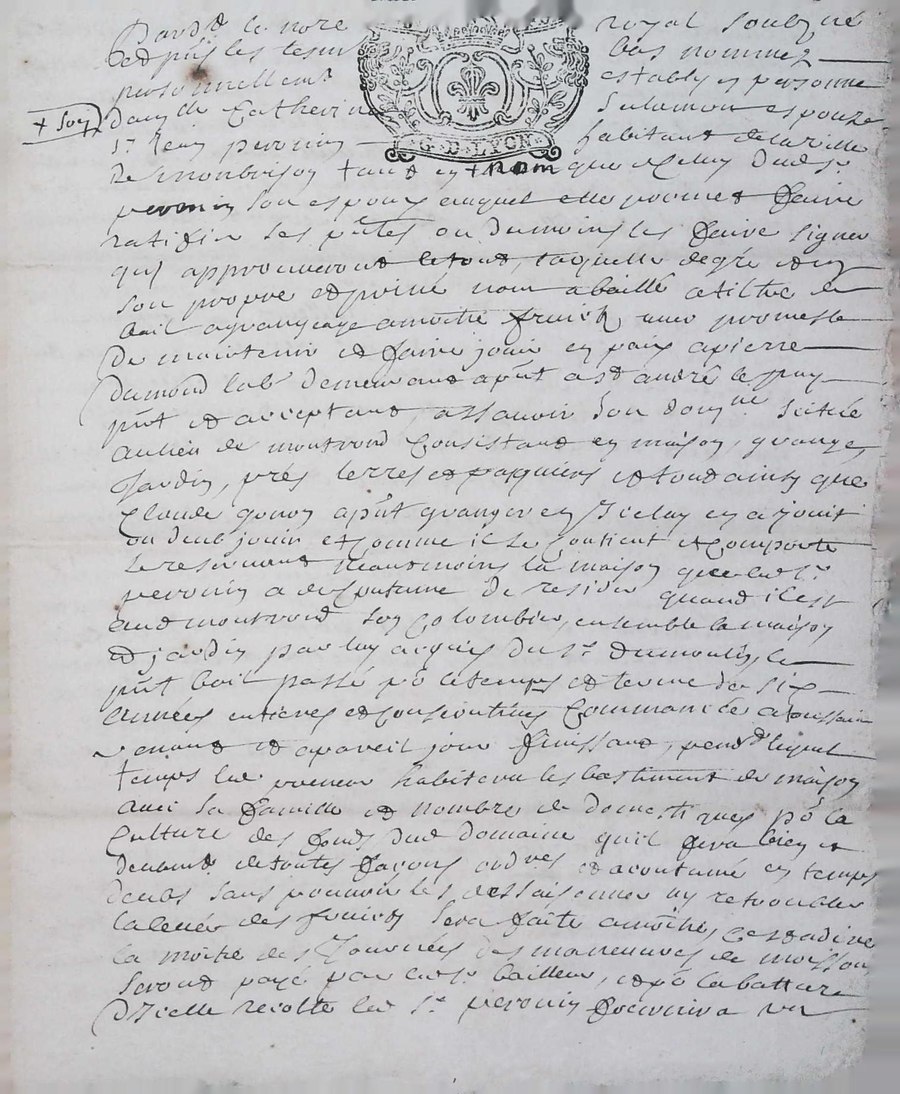 Pardt le nore royal soubzné
et puis les tesm bas nommez
personnellemt establye en personne
+ son
damlle Catherine Salomon espouze
Sr peronin habitant de la ville
G D LYON
de monbrison tant en + nom que celuy dudt sr
peronin son espoux auquel elle promet faire
ratifier ses pntes ou du moins les faire signer
qui approuveront le tout, laquelle de gré et en
son propre et privé nom a baillé a tiltre de
bail a grangeage a moitié fruictz avec promesse
de maintenir et faire jouir en paix a pierre
dumond labr demeurant a pnt a st andré le puy
pnt et acceptant, assavoir son domne scitué
au lieu de montrond consistant en maison, grange,
Jardin, prés terres et paquiers et tout ainsy que
Claude gonon a pnt granger en Iceluy en a jouit
ou deub jouir et comme il se contient et comporte
se reservant neantmoins la maison que led sr
peronin a de coutume de resider quand il est
aud montrond son colombier, ensemble la maison
et jardin par luy acquis du sr dumoulin, le
pnt bail passé pr le temps et terme de six
années entieres et consecutives commancée a toussain
venant et a pareil jour finissant, pendt lequel
temps led preneur habitera les bastiment de maison
avec sa famille et nombre de domestiques pr la
culture des fonds dud domaine quil fera bien et
deuemt de toutes façons ordres et acoutumé en temps
deubs sans pouvoir les dessaisonner ny retroubler
la levée des fruicts sera faite a moitié, cest a dire
la moitié des Journées des manœuvres de moisson
seront payé par led sr bailleur, et pr la batture
d'Icelle recolte led sr peronin fournira un